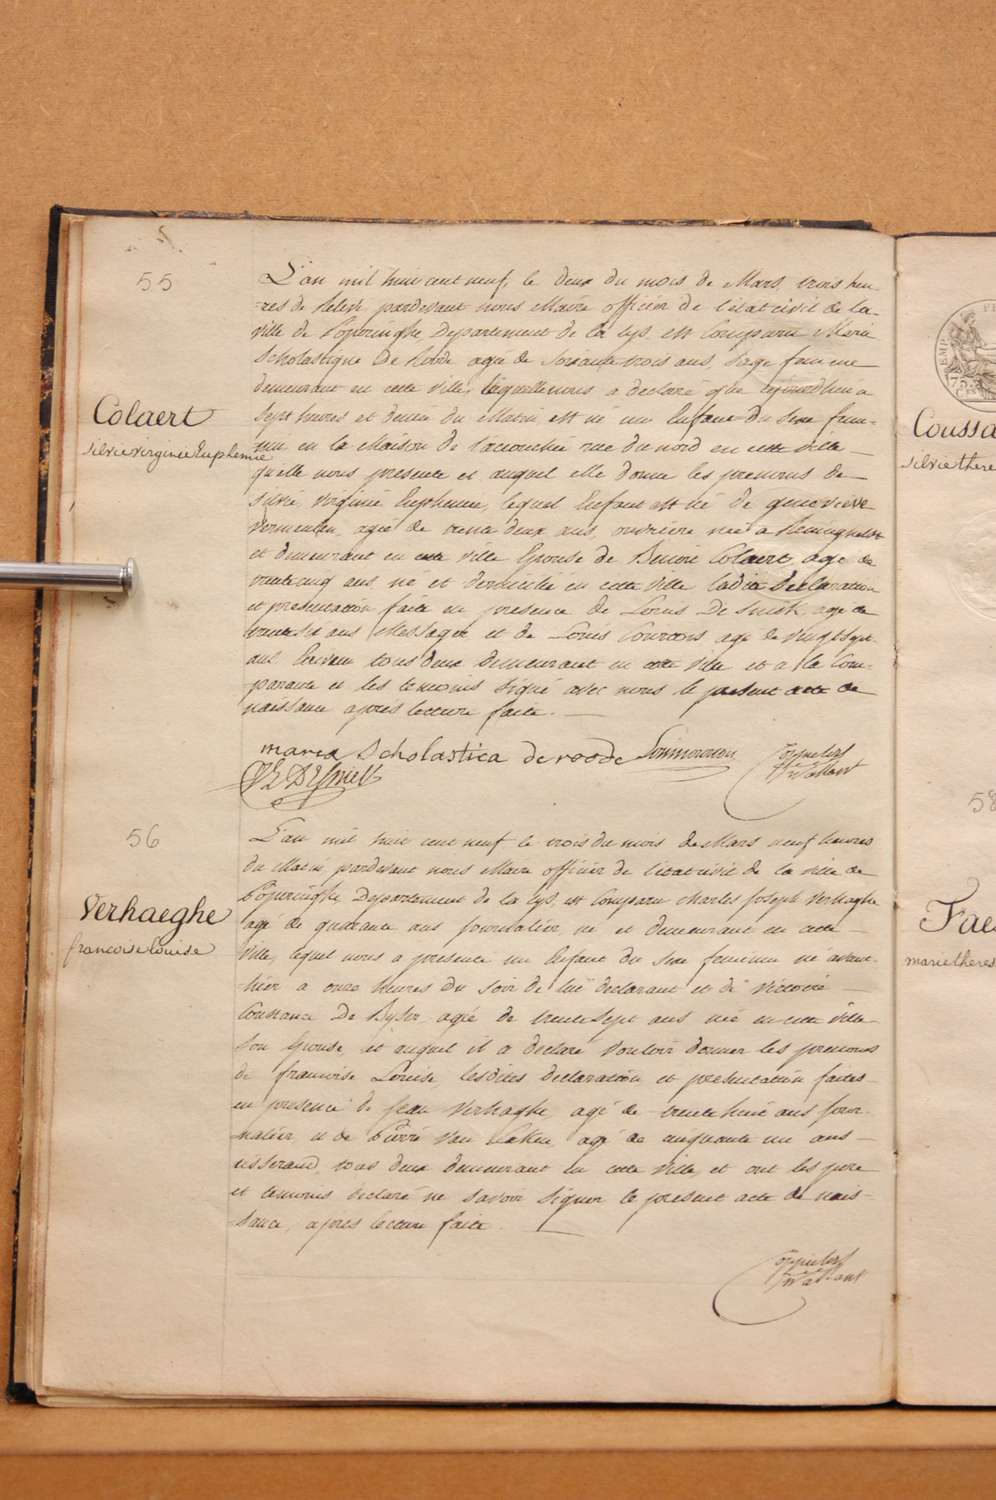 55
L'an mil huit cent neuf, le deux du mois de Mars, trois heu-
-res de relevé, pardevant nous Maire officier de l'état civil de la
ville de Poperinghe Departement de la Lys, est Comparu Marie
Scholastique De Roode agée de soixante trois ans, Sage femme
demeurant en cette ville, laquelle nous a declaré que aujourd'hui a
Colaert
silvie virginie Euphemie
Sept heures et demie du Matin est né un Enfant du Sexe femi-
nin en la Maison de l'accouchée rue du nord en cette ville
qu'elle nous presente et auquel elle donne les prenoms de
silvie, virginie Euphemie, lequel Enfant est né de genevieve
Vermeulen, agée de trente deux ans, ouvriere née a Reninghelst
et demeurant en cette ville Epouse de Benoit Colaert, agé de
trente cinq ans né et domicilié en cette ville Ladite Declaration
et presentation faite en presence de Louis De Smidt, agé de
trente six ans Messager et de Louis agé de vingt sept
ans Ecrivain tous deux demeurant en cette ville et a la Com-
parante et les temoins signé avec nous le present acte de
naissance après lecture faite. —
maria Scholastica de roode
56
L'an mil huit cent neuf le trois du mois de Mars neuf heures
du Matin, pardevant nous Maire officier de l'état civil de la ville de
Verhaeghe
francoise louise
Poperinghe Departement de la Lys, est Comparu Charles Joseph Verhaghe
agé de quarante ans journalier, né et demeurant en cette
ville, lequel nous a presenté un Enfant du Sexe feminin né avant-
-hier a onze heures du Soir de lui declarant et de Victoire
Constance De agée de trente Sept ans née en cette ville
Son Epouse, et auquel il a declaré vouloir donner les prenoms
de francoise Louise, lesdites declaration et presentation faites
en presence de Jean Verhaghe agé de trente huit ans jour-
nalier et de Pierre Van agé de cinquante un ans
tisserand, tous deux demeurant en cette ville, et ont les pere
et temoins declaré ne savoir signer le present acte de nais-
sance, après lecture faite.
Coussa
silvie there
58
Fae
marie theres